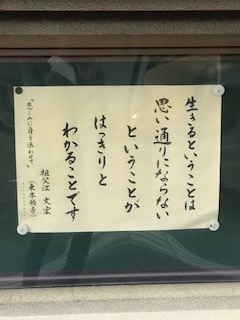 生きるということは
思い通りにならない
ということが
はっきりと
わかることです
祖父江 文宏
『悲しみに身を添わせて』
(東本願寺)